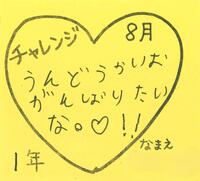 チャレンジ 8月
うんどうかいお
がんばりたい
な。♡!!
なまえ
1年